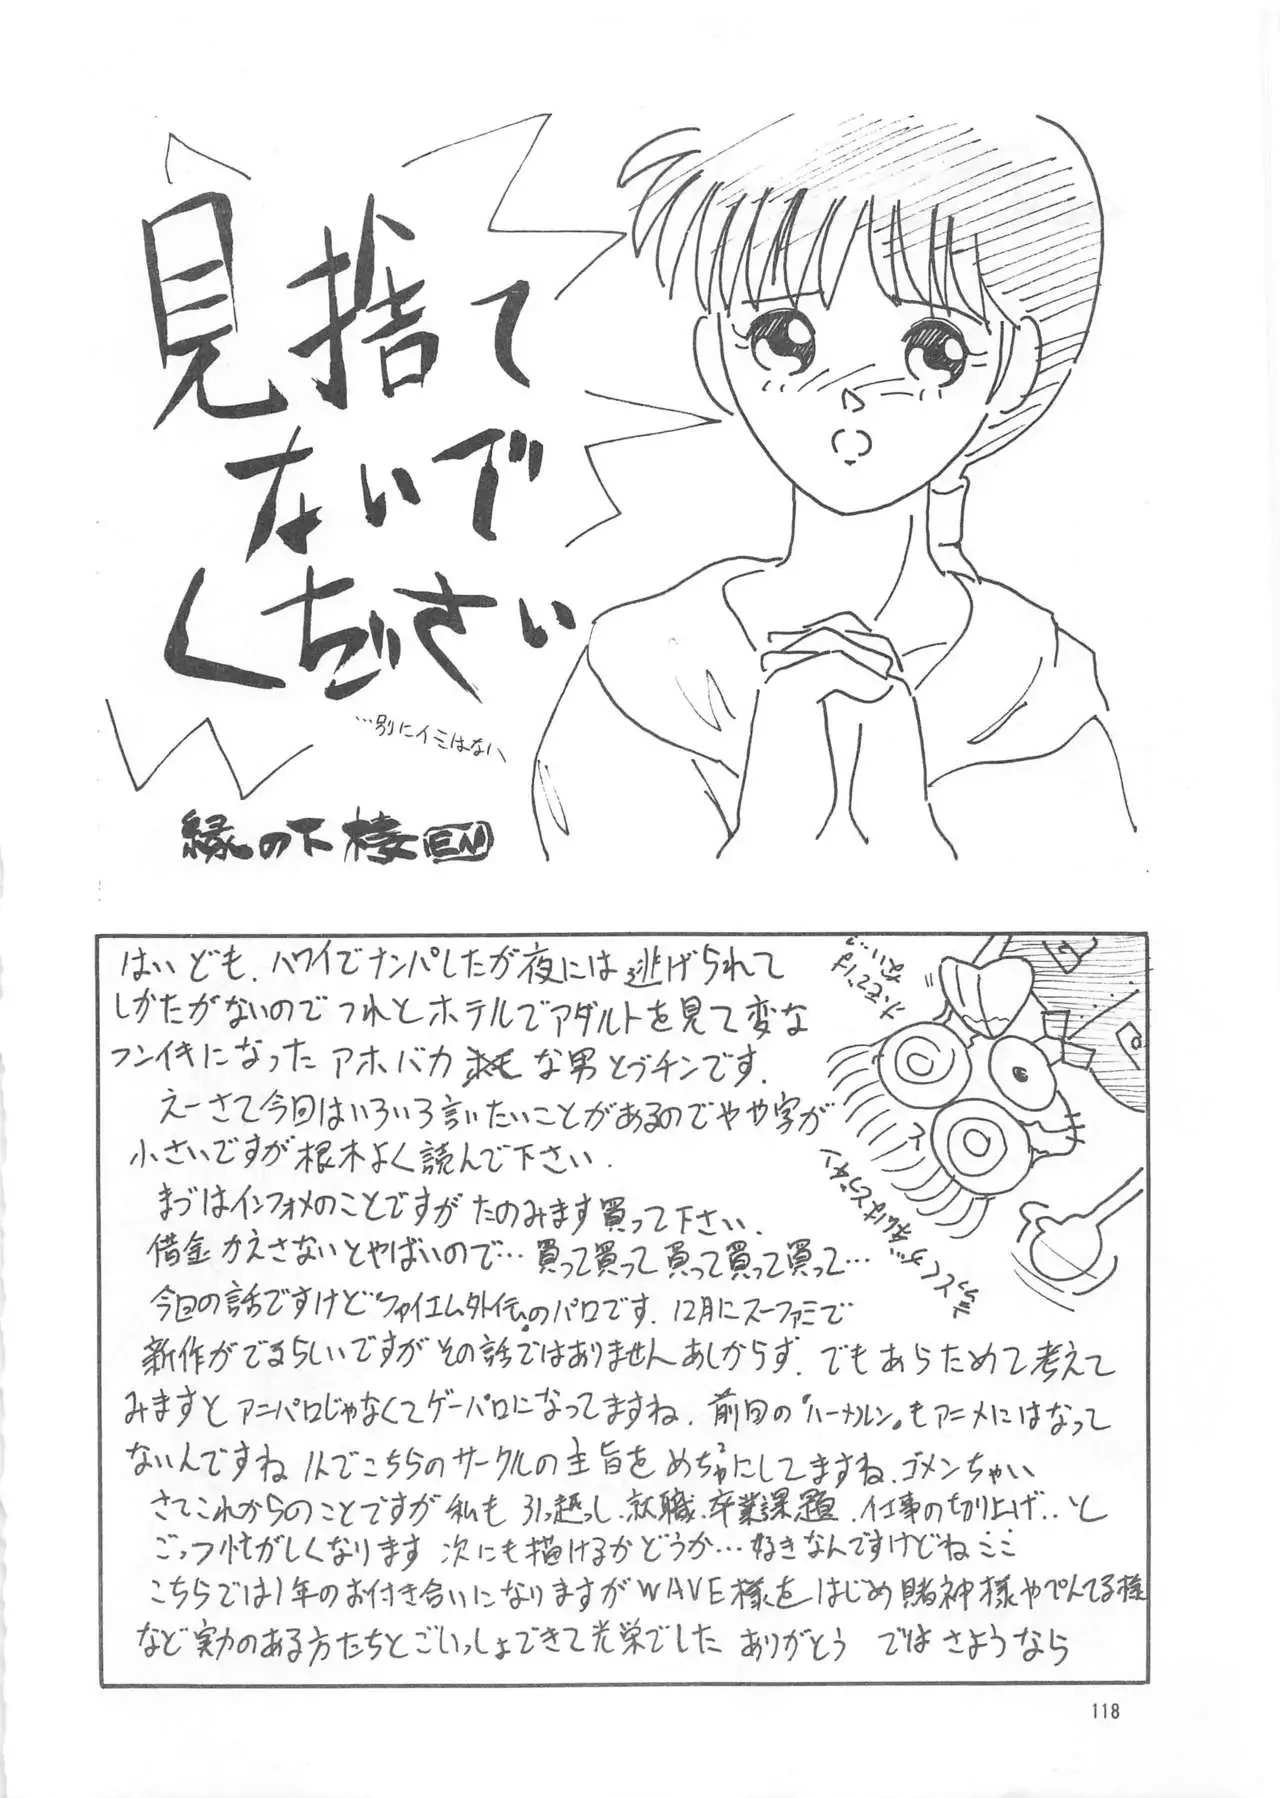 見捨て
ないで
ください
…別にイミはない
縁の下
はいども、ハワイでナンパしたが夜には逃げられて
しかたがないのでつれとホテルでアダルトを見て変な
フンイキになったアホバカ な男とっチンです.
えーさて今回はいろいろ言いたいことがあるのでやや字が
小さいですが根木よく読んで下さい.
まづはインフォメのことですがたのみます買って下さい.
借金かえさないとやばいので…買って買って買って買って買って…
今回の話ですけど"ファイエム外伝"のパロです. 12月にスーファミで
新作がでるらしいですがその話ではありませんあしからず. でもあらためて考えて
みますとアニパロじゃなくてゲーパロになってますね. 前回の"ハーメルン"もアニメにはなって
ないんですねんでこちらのサークルの主旨をめちゅにしてますね.ゴメンちゃい
さてこれからのことですが私も引っ越し、就職、卒業課題、仕事の切り上げ..と
ごっつ忙がしくなります次にも描けるかどうか…好きなんですけどね
こちらでは1年のお付き合いになりますがWAVE様をはじめ賭神様やぺんてる様
など実力のある方たちとごいっしょできて光栄でした ありがとう ではさようなら
118